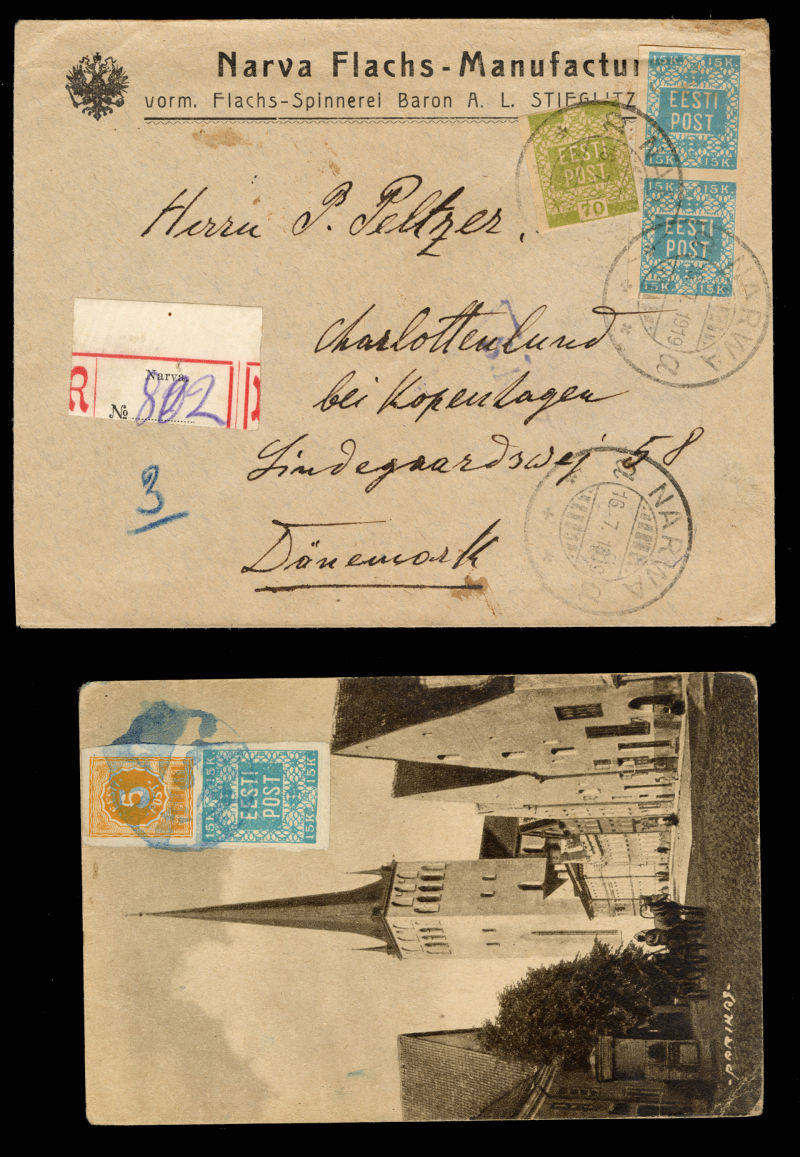 Narva Flachs-Manufactur
vorm. Flachs-Spinnerei Baron A. L. STIEGLITZ
15K 15K
EESTI
POST
15K 15K
15K 15K
EESTI
POST
15K 15K
EESTI
POST
70
NARWA
1919
a
Herrn P. Peltzer.
Charlottenlund
bei Kopenhagen
Lindegaardswej 58
Dänemark
R
Narva.
№ 802
3
NARWA
16.7.1919
a
5
15K 15K
EESTI
POST
15K 15K
-PARIKAS-